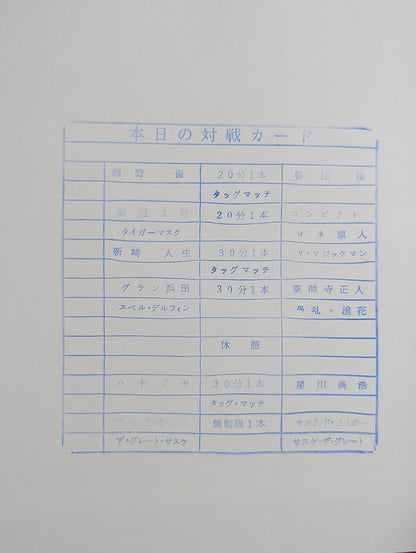 本日の対戦カード
野 優 20分1本
タッグマッチ
20分1本 コンビクト
タイガーマスク ヨネ原人
新崎 人生 30分1本 ザ・マジックマン
タッグマッチ
グラン浜田 30分1本 薬師寺正人
スペル・デルフィン 愚乱・浪花
休憩
ハヤブサ 30分1本 星川尚浩
タッグ・マッチ
無制限1本 マスク・ド・タイガー
ザ・グレート・サスケ サスケ・ザ・グレート